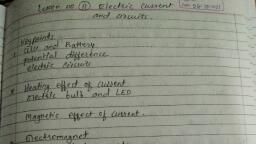 Lesson no ⑪ Electric Current
and circuits.
Keypoints
Cell and Battery
potential difference
electric circuits
* Heating effect of Current
Electric bulb and LED
Magnetic effect of current.
Electromagnet